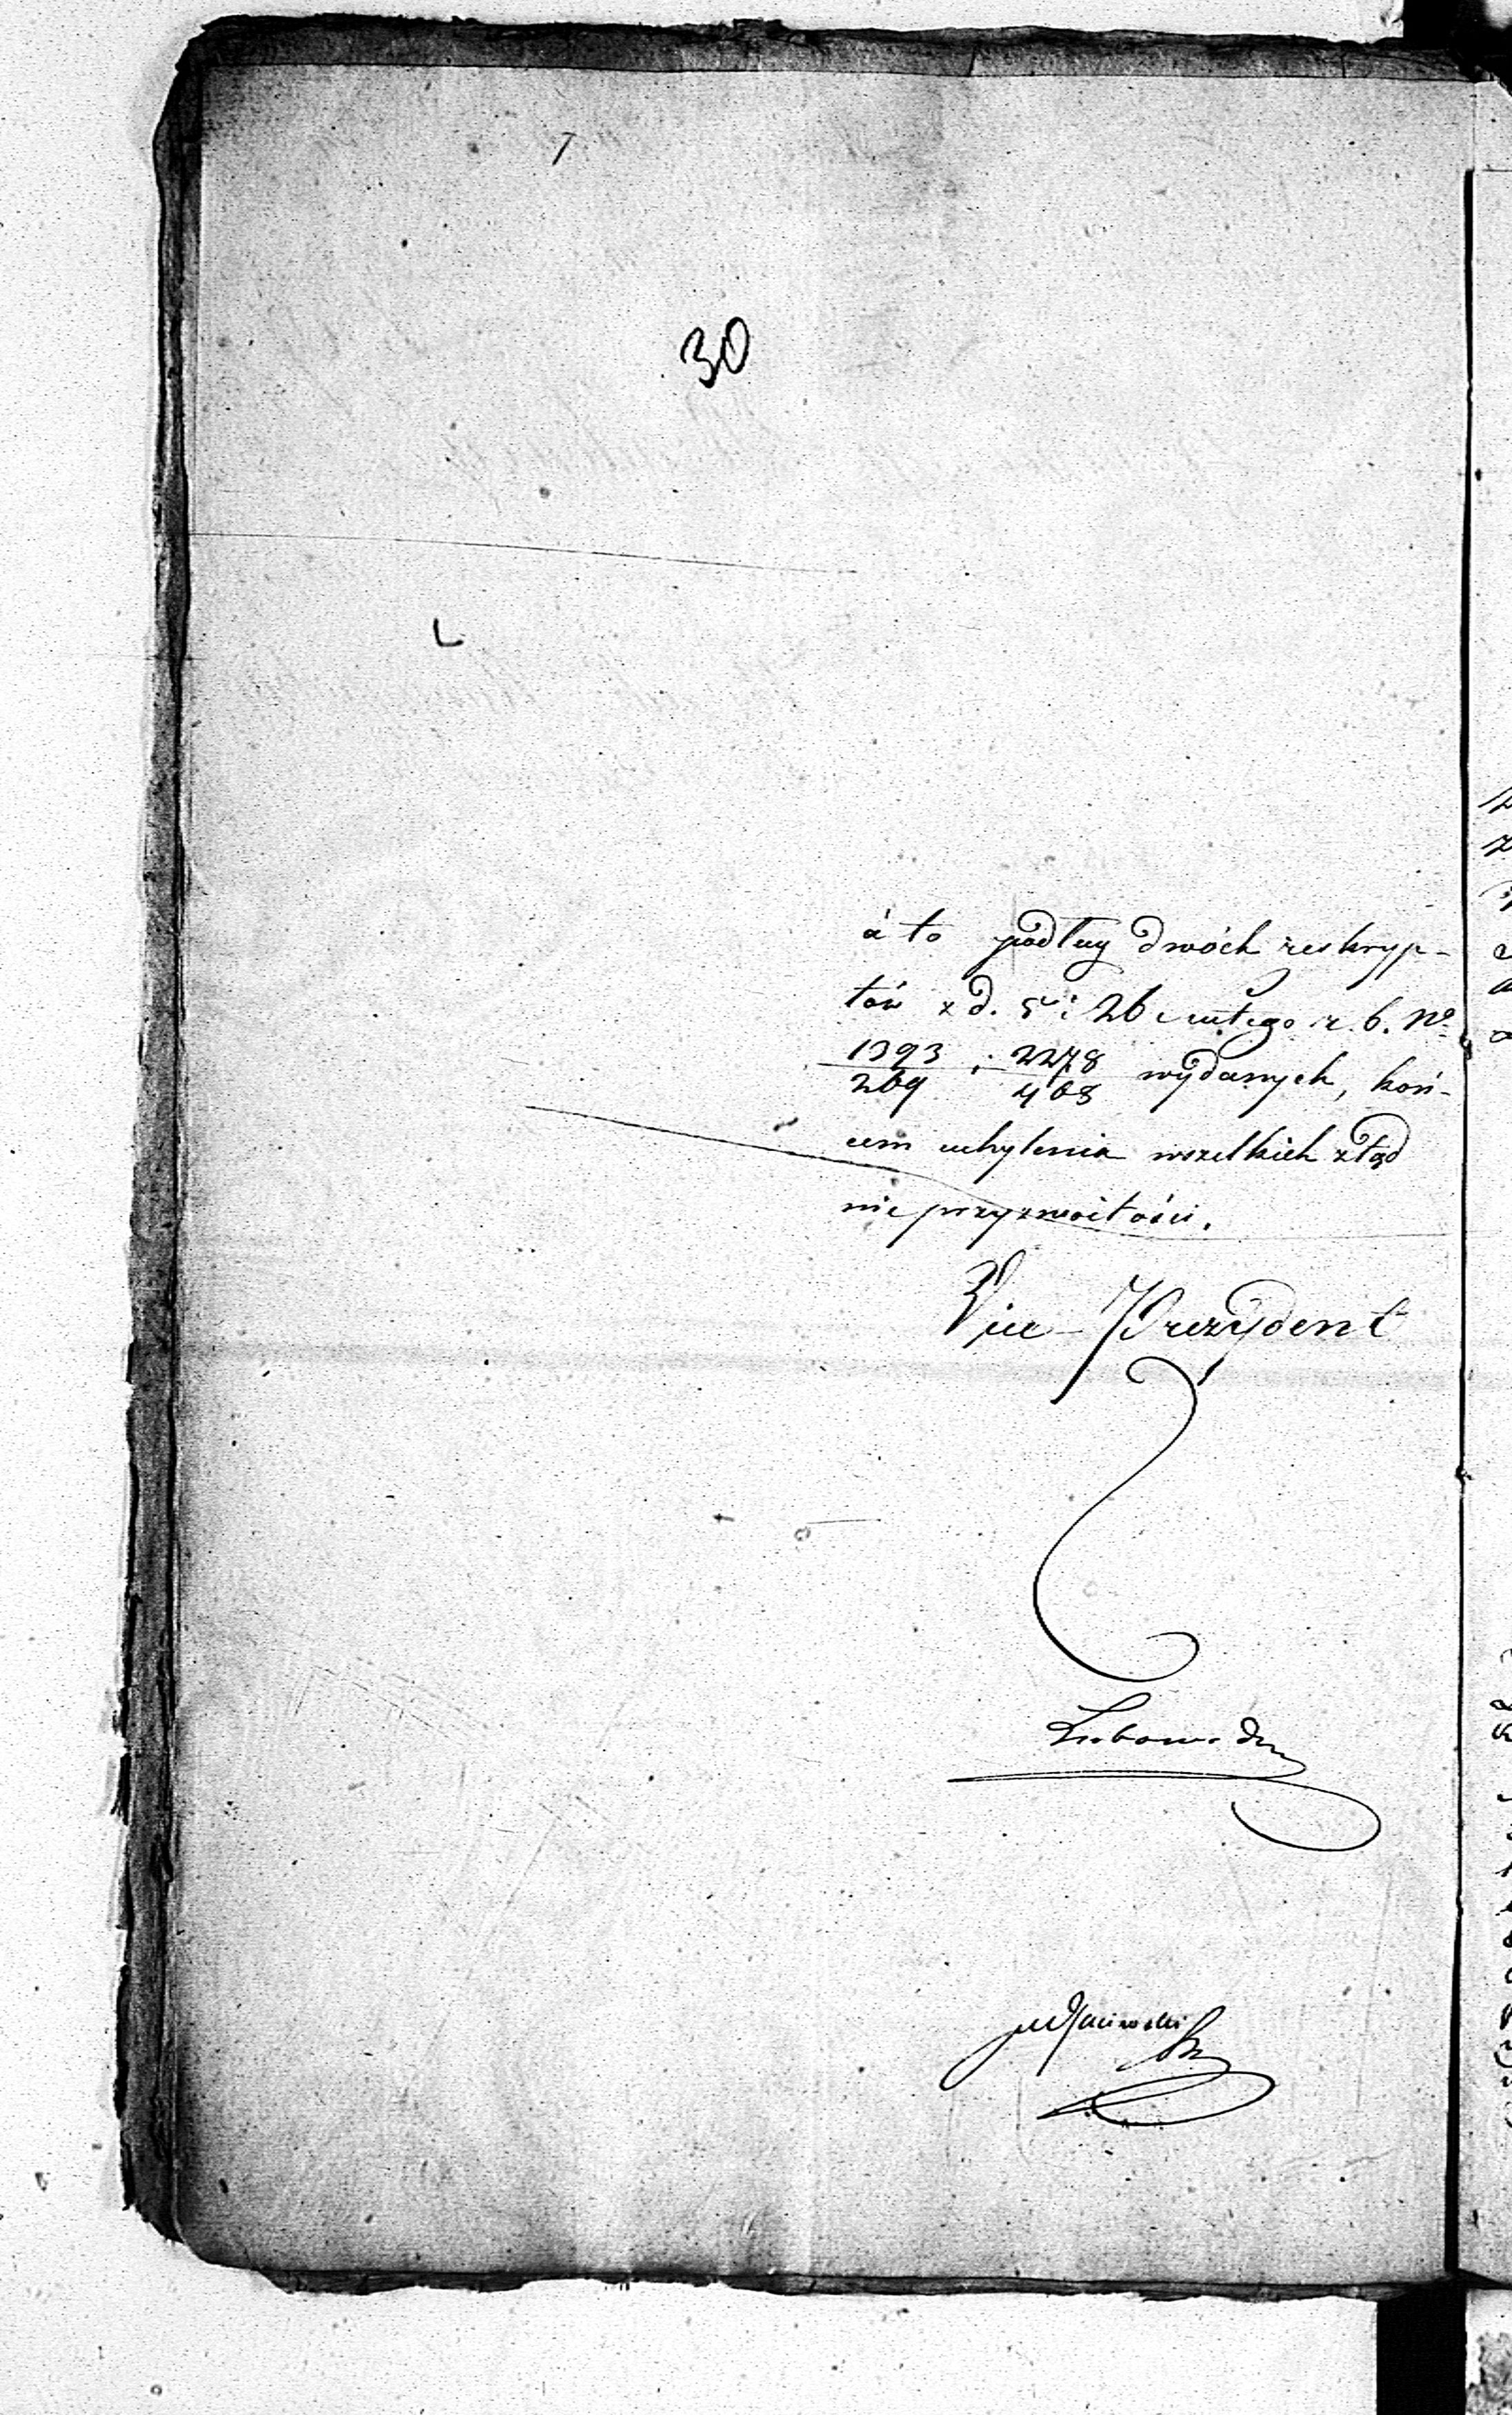 30
á to podług dwóch reskryp-
tów z d. 5 i 26 Lutego r. b. No
1393/269 i 2278/468 wydanych, koń-
cem uchylenia wszelkich ztąd
nieprzyzwoitości.
Vice-Prezydent
Lubowidzki